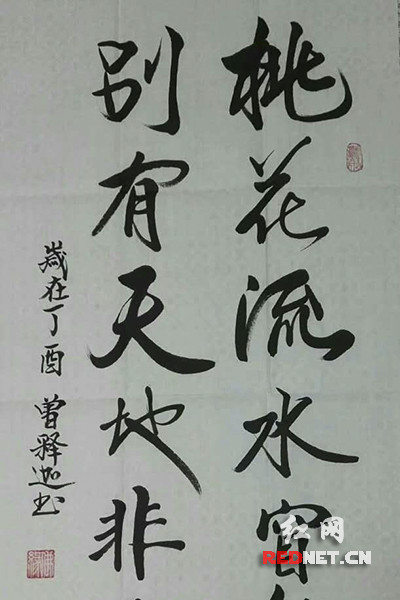 桃花流水窅
别有天地非
歲在丁酉 曾釋迦书
红网
REDNET.CN